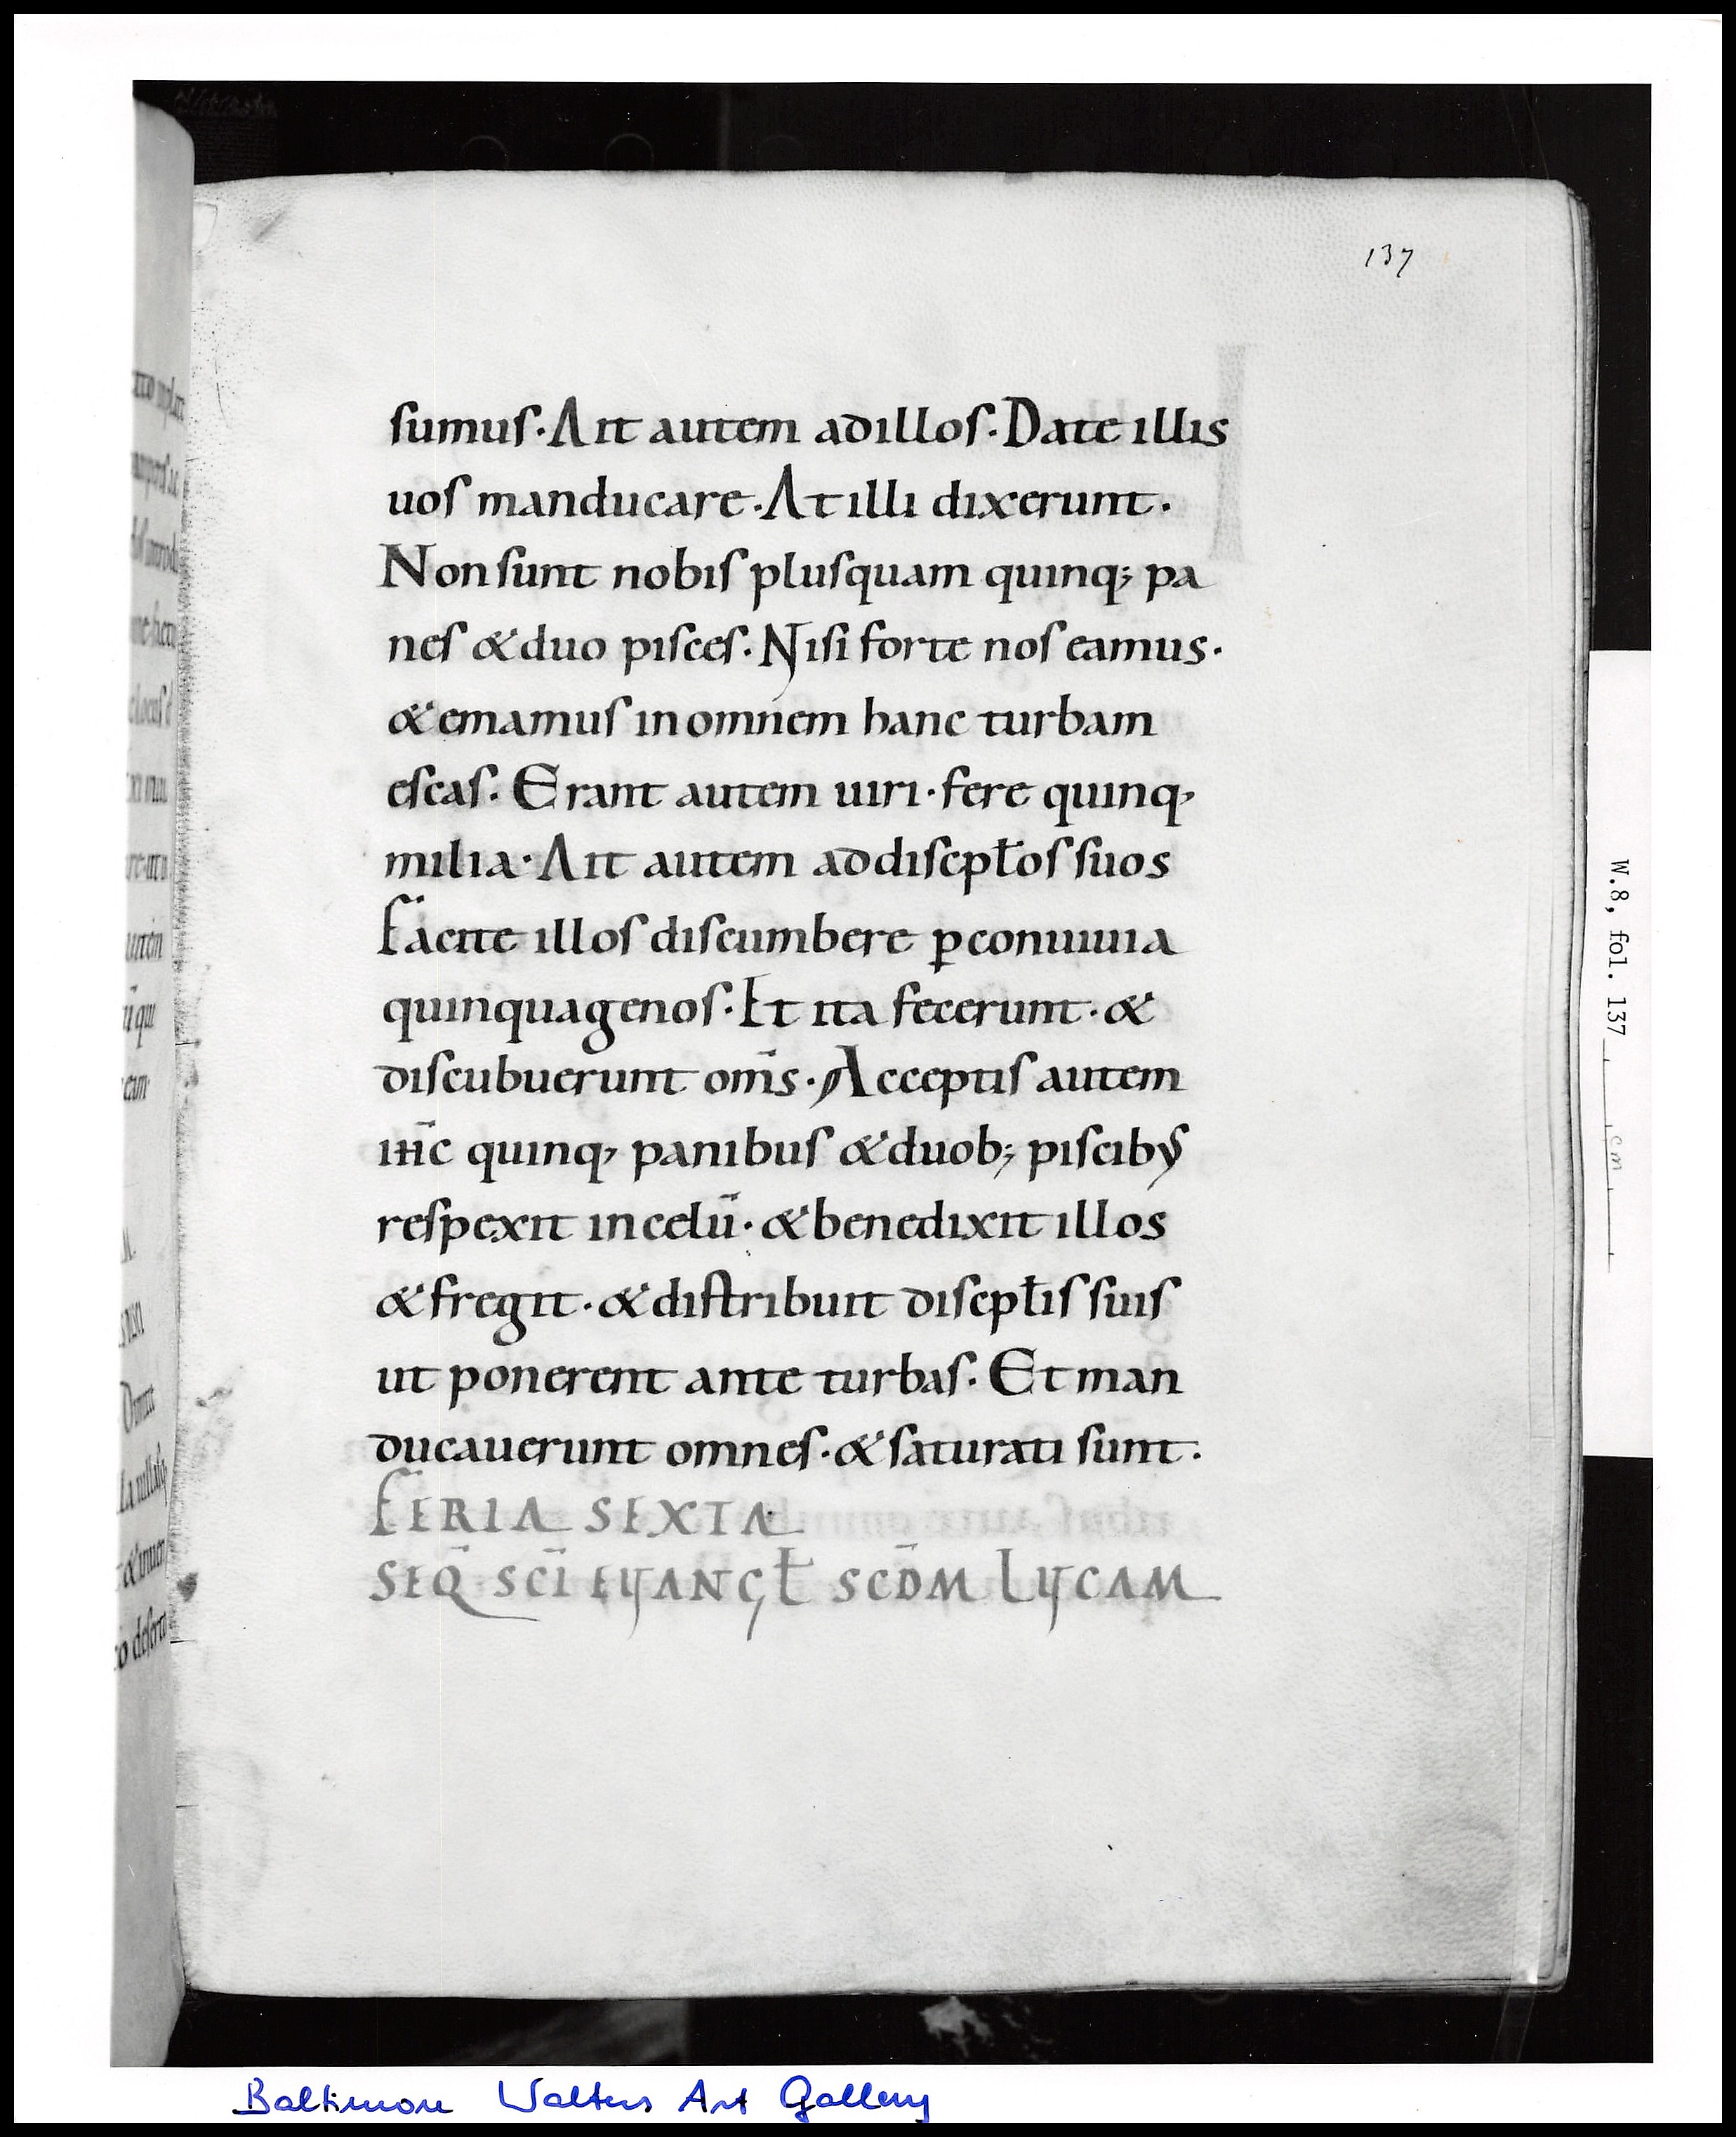 137
sumus. Ait autem ad illos. Date illis
uos manducare. At illi dixerunt.
Non sunt nobis plusquam quinq; pa
nes & duo pisces. Nisi forte nos eamus.
& emamus in omnem hanc turbam
escas. Erant autem uiri. fere quinq;
milia. Ait autem ad discipłos suos
Facite illos discumbere ꝑ conuiuia
quinquagenos. Et ita fecerunt. &
discubuerunt om̄s. Acceptis autem
ih̄c quinq; panibus & duob; piscibus
respexit in celū. & benedixit illos
& fregit. & distribuit discipłis suis
ut ponerent ante turbas. Et man
ducauerunt omnes. & saturati sunt.
FERIA SEXTA
SEQ̄ SC̄I EUANGŁ SCD̄M LUCAM
W.8, fol. 137
cm
Baltimore Walters Art Gallery